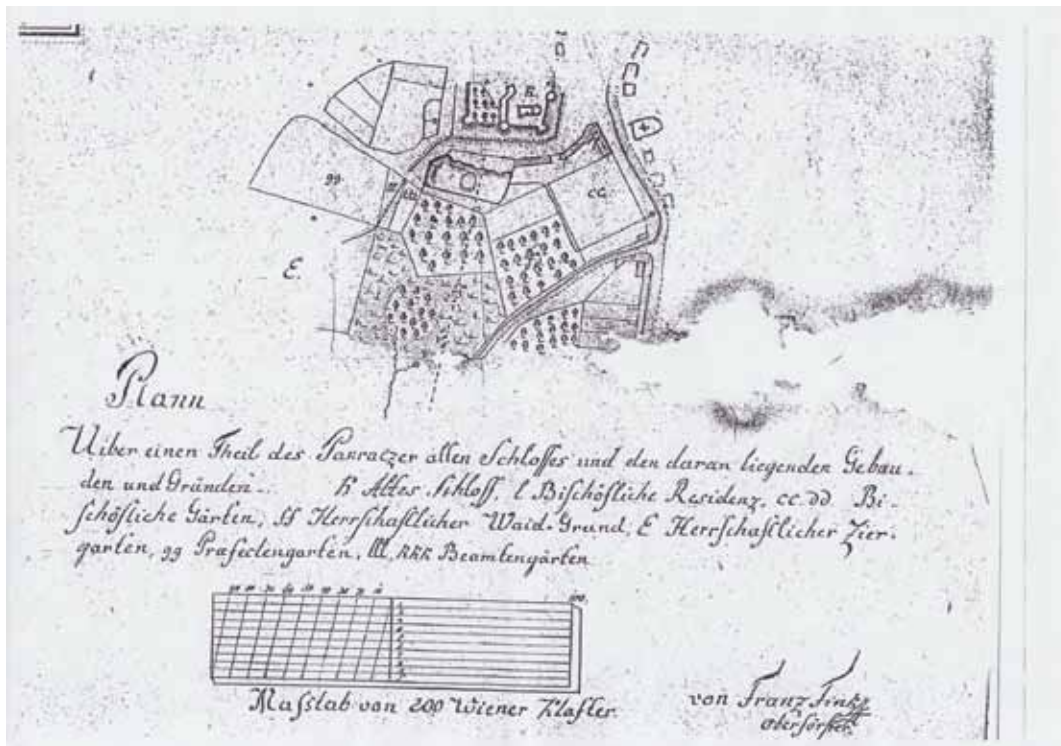 k.
cc.
gg
E
Plann
Uiber einen Theil des Pankatzer alten Schlosses und den daran liegenden Gebäu-
den und Gründen. k Altes Schloß, l Bischöfliche Residenz, cc. dd Bi-
schöfliche Gärten, ff Herrschaftlicher Waid-Grund, E Herrschaftlicher Zier-
garten, gg Præfectengarten, lll, kkk Beamtengärten
100.
Maßtab von 200 Wiener Klafter.
von Franz
Oberförster